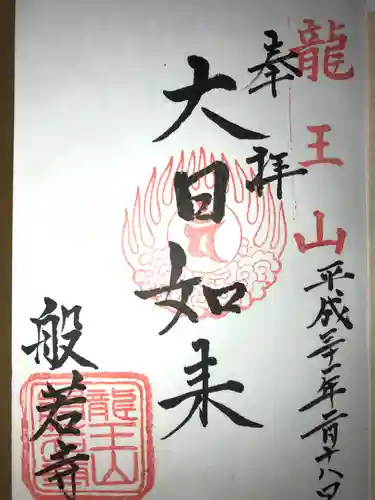 龍王山
奉拝
平成三十一年二月十八日
大日如来
般若寺